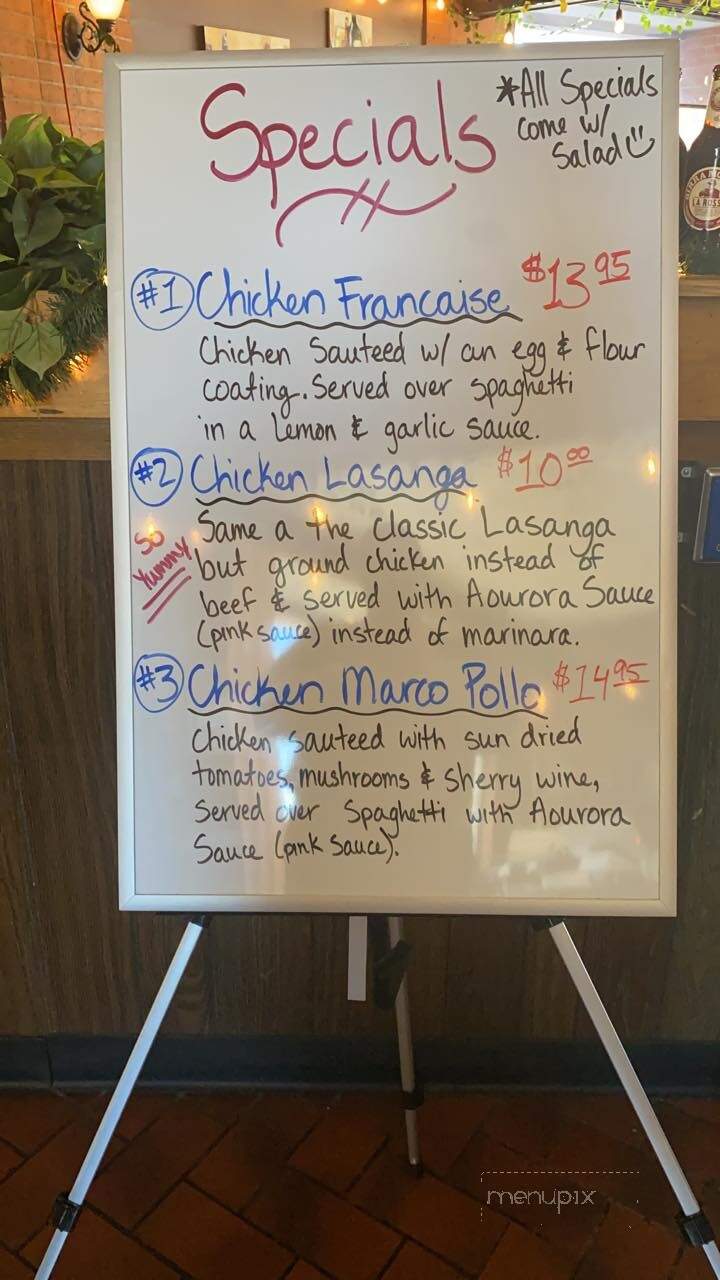 Specials
*All Specials
come w/
Salad
#1 Chicken Francaise $13.95
Chicken Sauteed w/ an egg & flour
coating. Served over spaghetti
in a Lemon & garlic sauce.
#2 Chicken Lasanga $10.00
So
Yummy
Same a the classic Lasanga
but ground chicken instead of
beef & served with Aourora Sauce
(pink sauce) instead of marinara.
#3 Chicken Marco Pollo $14.95
Chicken sauteed with sun dried
tomatoes, mushrooms & Sherry wine,
Served over Spaghetti with Aourora
Sauce (pink sauce).
LA ROSS
menupix